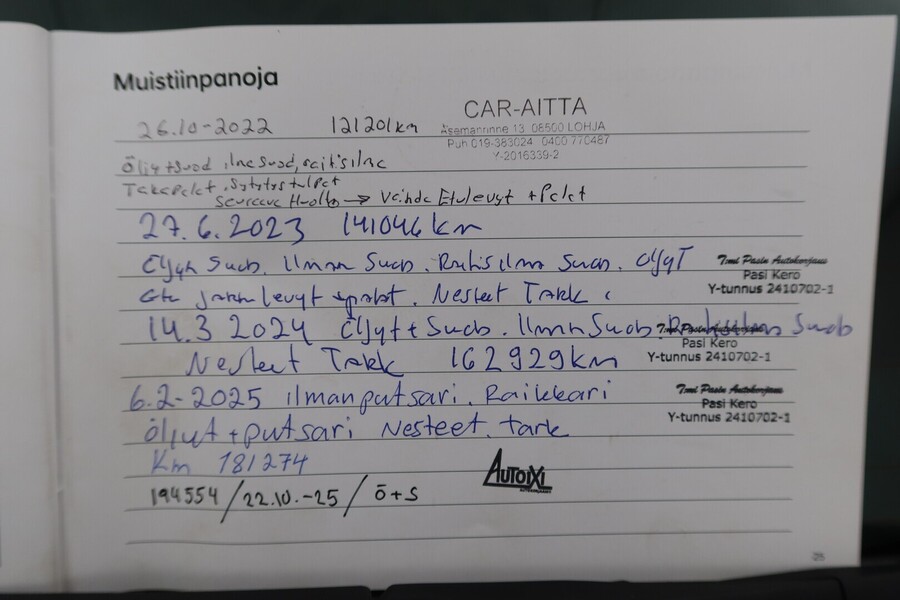 Muistiinpanoja
26.10-2022 121201km
CAR-AITTA
Asemanrinne 13, 08500 LOHJA
Puh 019-383024 0400 770487
Y-2016339-2
Öljyt+Suod ilmaSuod, raitisilma
TakaPalat, Sytytystulpat
Seuraava Huolto → Vaihda Etulevyt + Palat
27.6.2023 141046km
Öljyn Suod. Ilman Suod. Raitis ilma Suod. ÖljyT
Tmi Pasin Autokorjaus
Pasi Kero
Y-tunnus 2410702-1
Etu jarru levyt + palat. Nesteet Tark
14.3 2024 Öljyt+Suod. Ilman Suob. Suob
Tmi Pasin Autokorjaus
Pasi Kero
Y-tunnus 2410702-1
Nesteet Tark 162929km
6.2-2025 ilmanputsari. Raikkari
Tmi Pasin Autokorjaus
Pasi Kero
Y-tunnus 2410702-1
öljyt + putsari Nesteet. tark
Km 181274
AUTOIXI
194554/22.10.-25/ ö+s